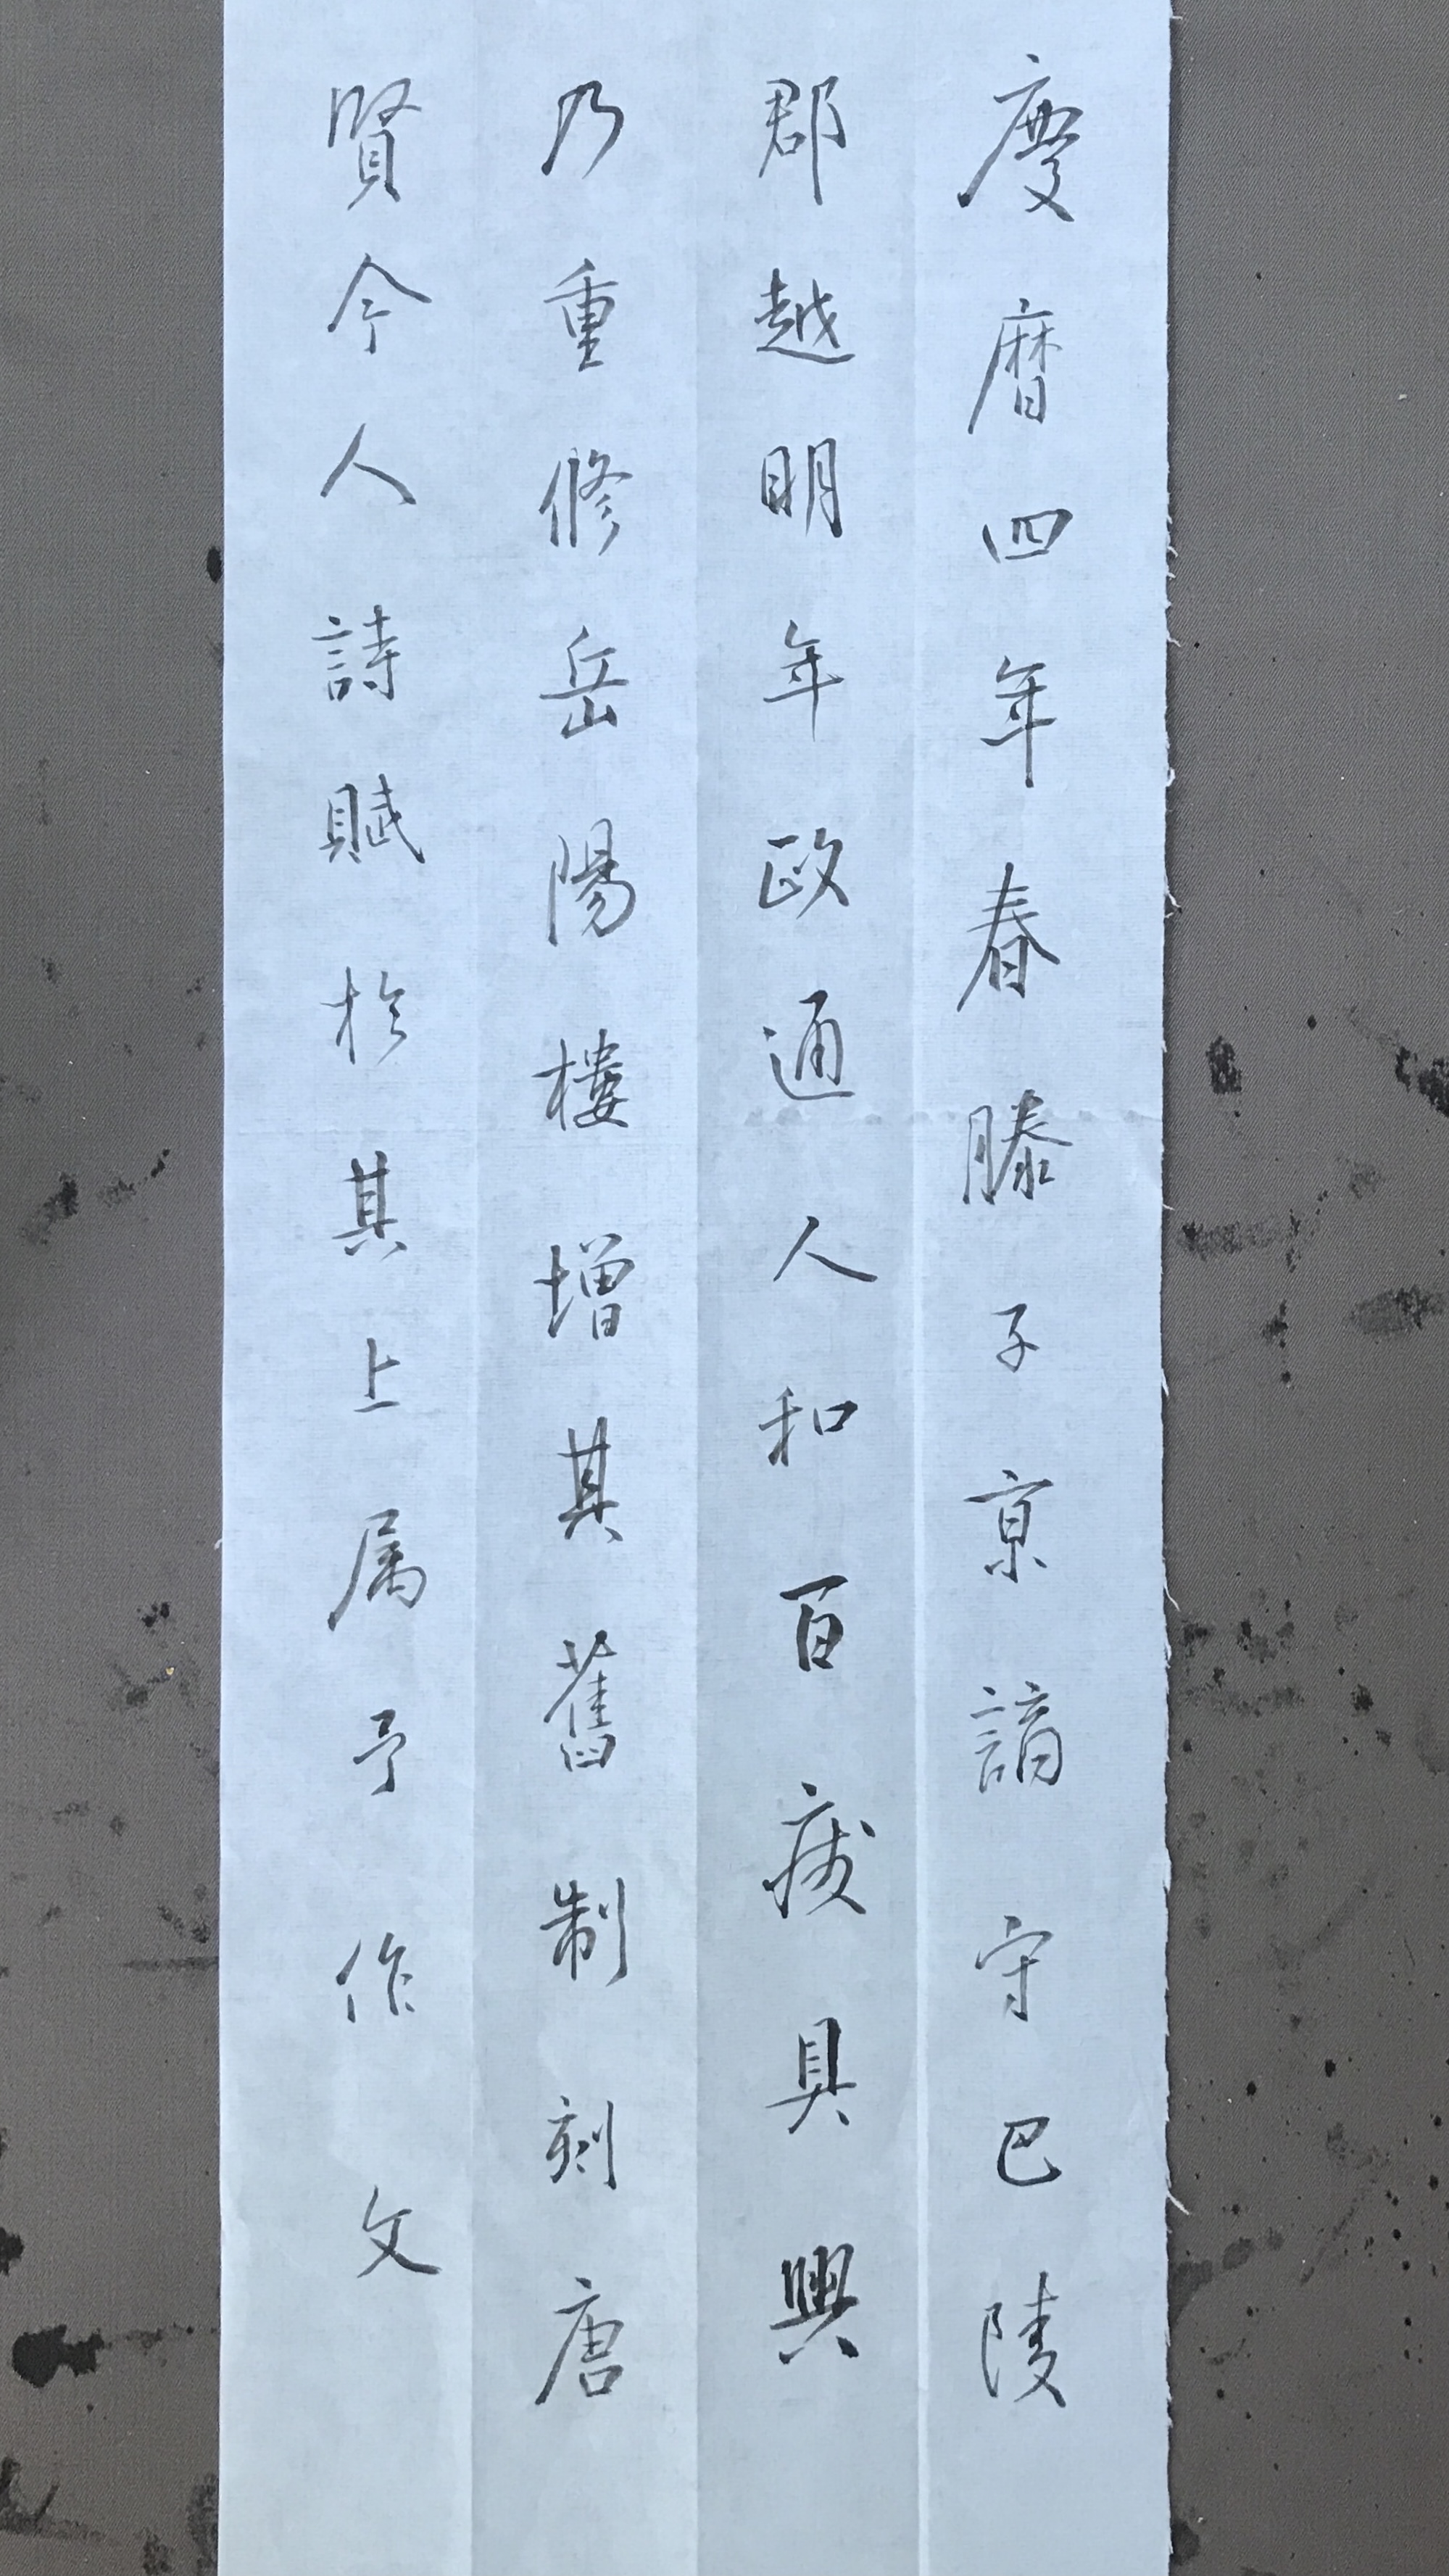 慶曆四年春滕子京謫守巴陵
郡越明年政通人和百癈具興
乃重修岳陽樓增其舊制刻唐
賢今人詩賦於其上属予作文